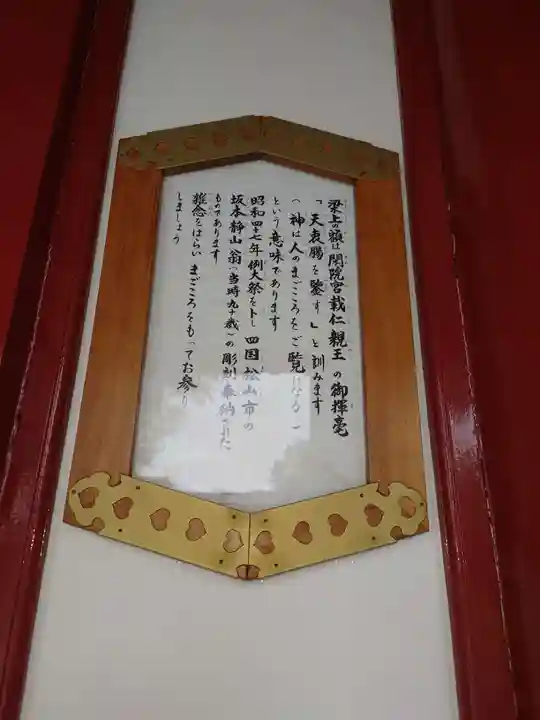 梁上の額は閑院宮載仁親王の御揮毫
「天衷膓を鑒す」と訓みます
（神は人のまごころをご覧になる）
という意味であります
昭和四十七年例大祭を卜し四国松山市の
坂本静山翁（当時九十歳）の彫刻奉納された
ものであります
雑念をはらいまごころをもってお参り
しましょう